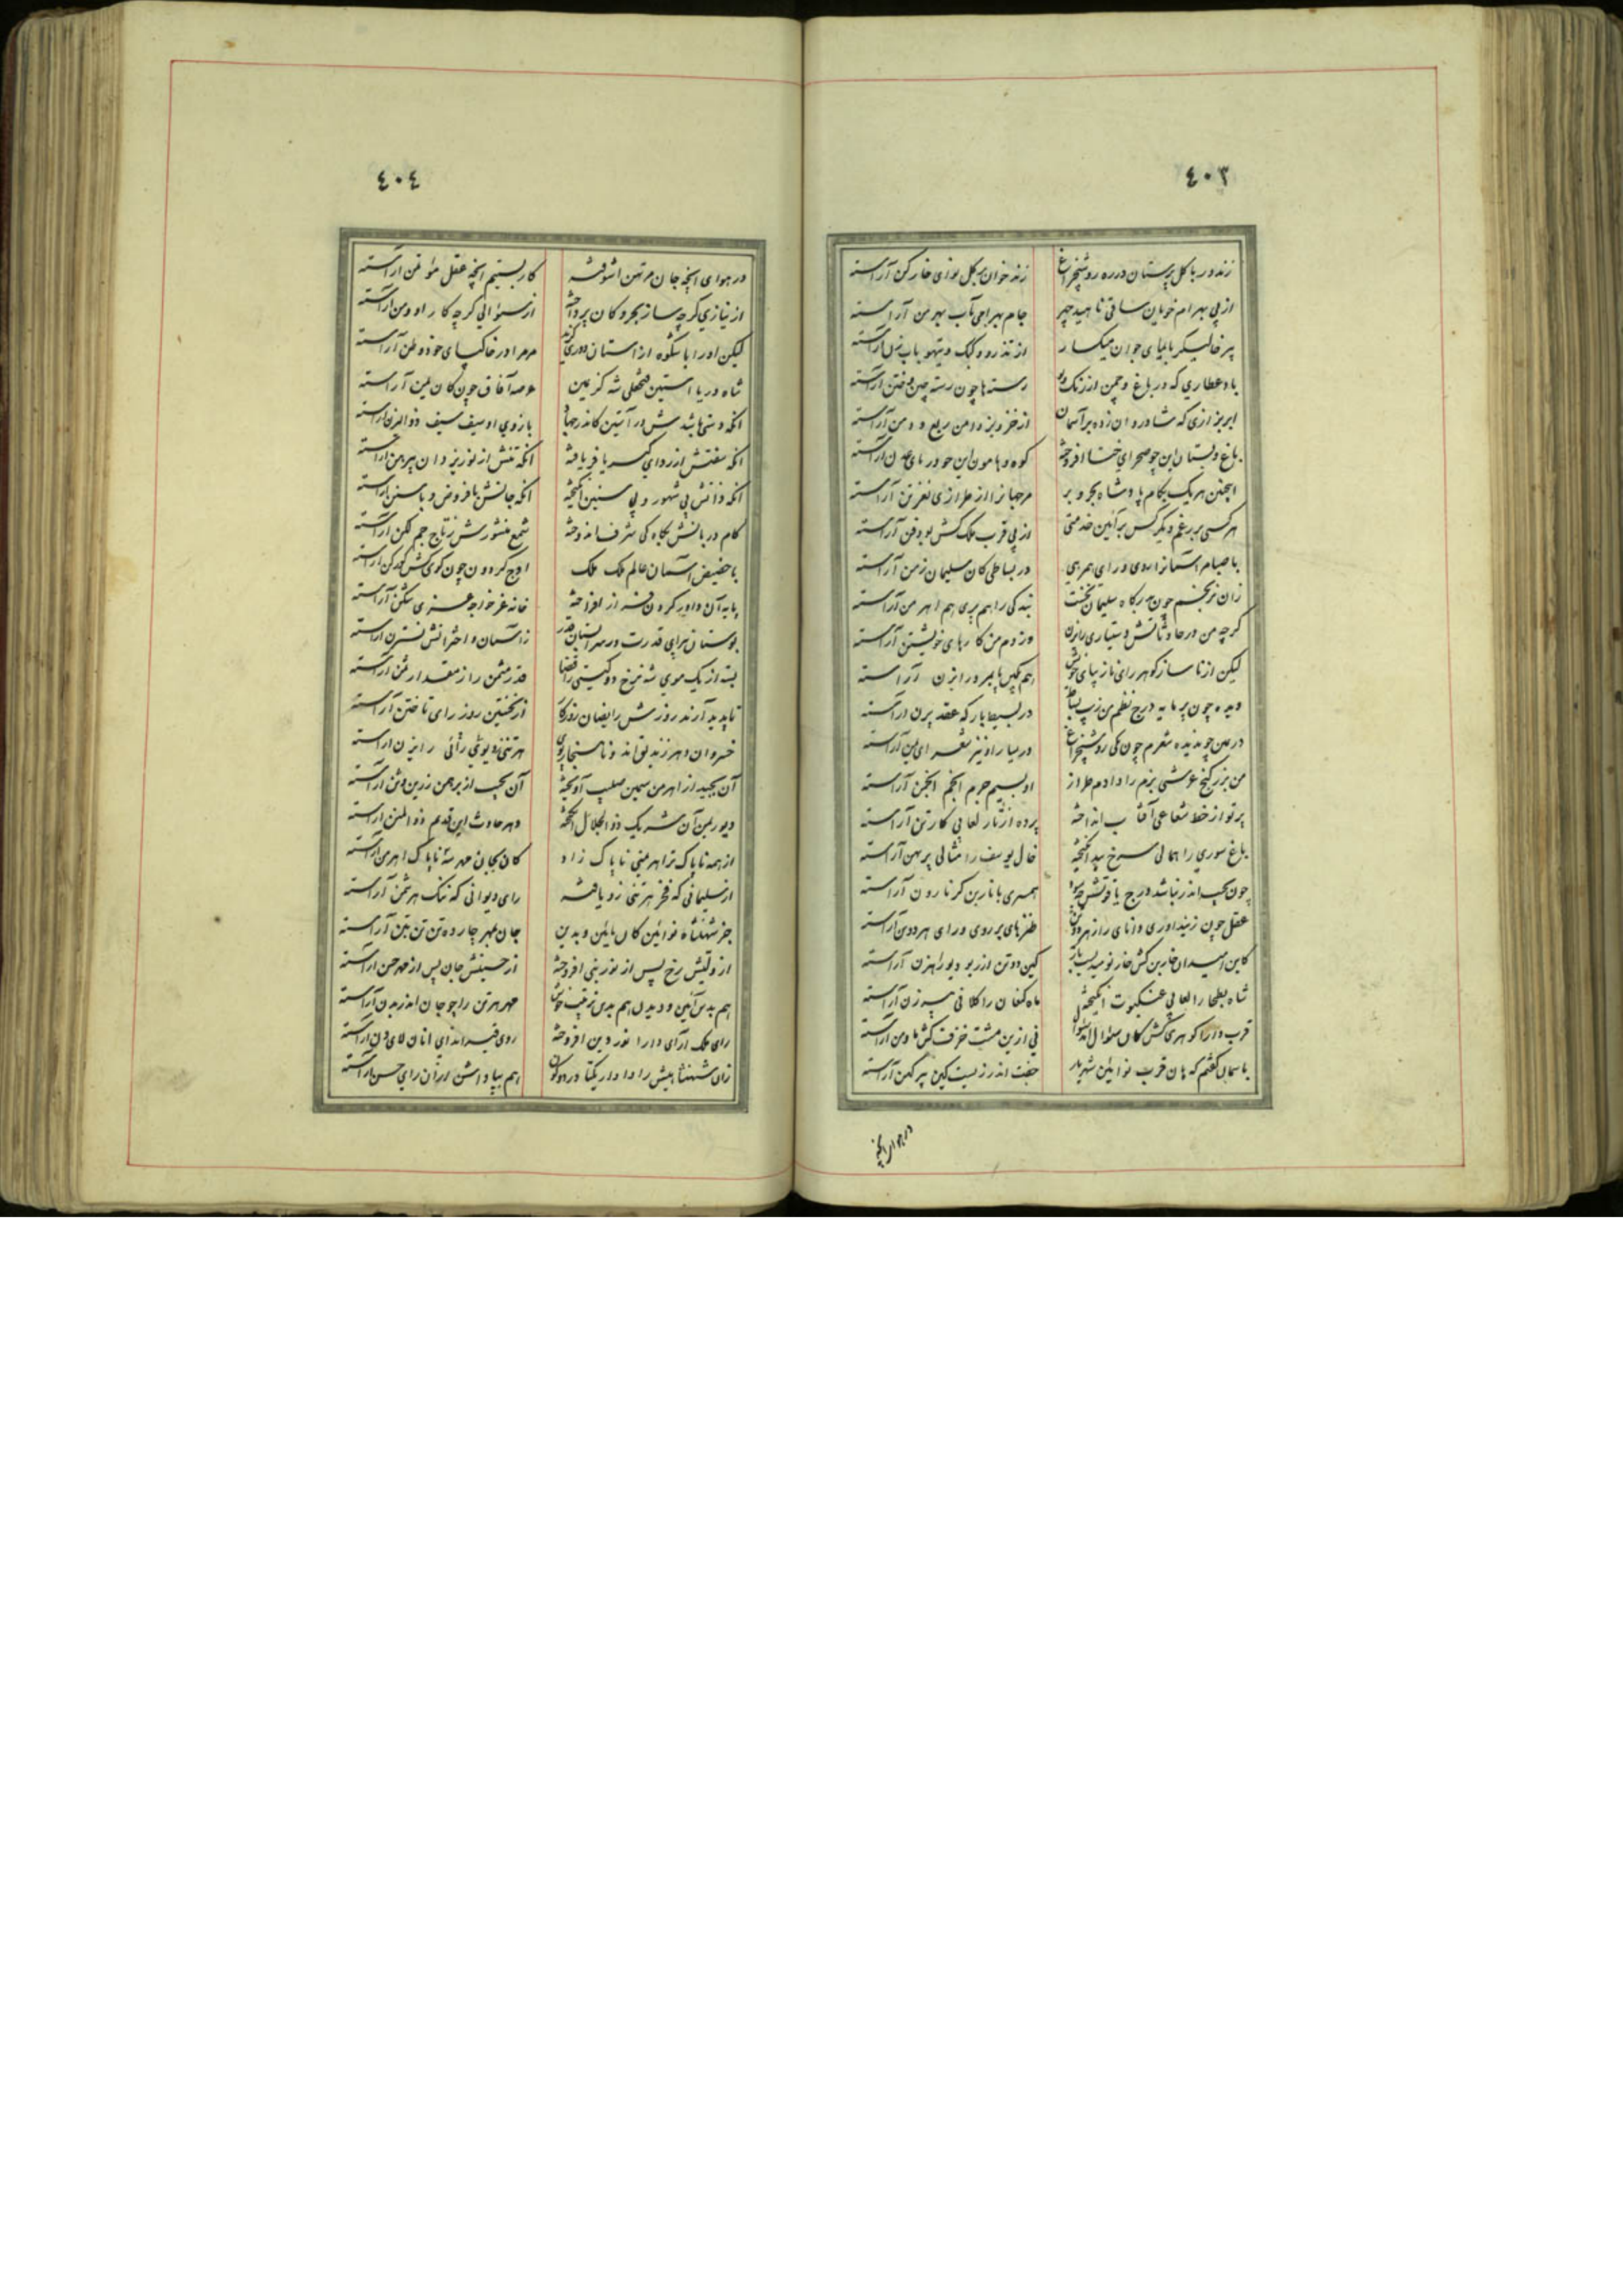 ٤٠٣
زند در با گل پرستان درره روشنچراغ زند خوان بر گل نوای خارکن آراسته
از پی بهرام خوبان ساقی ناهید چهر جام بهرامی بآب بهرمن آراسته
پیر خالیگر بایمای جوان میکسار از تذرو و کبک و تیهو بابزن آراسته
باد عطاری که در باغ و چمن از رنگ و بو رسته ها چون رسته چین و ختن آراسته
ابر بزازی که شادروان زده بر آسمان از خز و بز دامن ربع و دمن آراسته
باغ و بستان این چو صحرای ختا افروخته کوه و هامون این حو در بای عدن آراسته
اینچنین هر یک بکام پادشاه بحر و بر مرجهانرا از طرازی نغز تن آراسته
هر کسی بر رغم دیگر کس بر آئین خدمتی از پی قرب ملک کش بود فن آراسته
با صبا مر آستانرا روی و رای همرهی در بساطی کان سلیمان زمن آراسته
زان نرنجم چون بدرگاه سلیمان بخت بندگی را هم پری هم اهرمن آراسته
گرچه من در حادثاتش دستیاری رایزن وز دم من کارهای خویشتن آراسته
لیکن از ناساز گوهر رای ناز پیای خویش هم مگس با پر و رایزن آراسته
دیده چون پر مایه درج نظم من زیب بساط در بسیط بارگه عقد پرن آراسته
در عدن چو ندیده شعرم چون مکی روشنچراغ در سار او نیز شعرای یمن آراسته
من بزر گنج عرشی بزم را داده طراز او بسیم جرم انجم انجمن آراسته
پرتو از خط شعاعی آفتاب انداخته پرده از تار لعابی کارتن آراسته
باغ سوری را همالی سرخ بید انگیخته خال یوسف را مثالی پرهن آراسته
همسری با نار بن گر نارون آراسته
عقل چون زینداوری دانای راز هر دو تن طنزهای بر روی و رای هر دو تن آراسته
کین دو تن از ریو دیو راهزن آراسته
شاه بطحا را لعابی عنکبوت انگیخته ماه کنعان را کلافی پیرزن آراسته
قرب دارا گوهری کش کان سؤال نی ازین مشت خزف کش ما و من آراسته
با سمان گفتم که هان قرب نو ایین شهریار جفت اندرز است کین پیر کهن آراسته
در هوای آنچه
٤٠٤
در هوای آنچه جان مرتهن آشوفته کار بستیم آنچه عقل مؤتمن آراسته
از نیازی گرچه ساز بحر و کان پرداخته از سؤالی گرچه کار او و من آراسته
لیکن او را با شکوه از آستان دوری گزید مر مرا در خاکپای خود وطن آراسته
شاه دریا آستین فتحعلی شه کز یمین عرصه آفاق چون کان یمن آراسته
آنکه دستی باشدش در آستین کاندر جهاد بازوی او سیف سیف ذوالیزن آراسته
آنکه سفتش از ردای کبریا فر یافته آنکه تنش از نور یزدان پیرهن آراسته
آنکه ذاتش بی شهور و بی سنین انگیخته آنکه جانش با فروض و با سنن آراسته
گام دربانش بجاه کی شرف اندوخته شمع منشورش ز تاج جم لگن آراسته
با حضیض آستان عالم ملک ملک اوج گردون چون گوی کش گورکن آراسته
پایه آن داور گردون فر از افراخته خانه غر خواجه غزی شکن آراسته
بوستان پیرای قدرت در سرابستان قدر ز آسمان و اخترانش نسترن آراسته
بسته از یک موی شه نرخ دو گیتی را قضا قدر مثمن را ز مقدار ثمن آراسته
تا پدید آرند روزش را یضان روزگار از نخستین روز رای تاختن آراسته
هر تنی دیوی رائی رایزن آراسته
آن بجید از اهرمن سیمین صلیب آویخته آن بجیب از برهمن زرین وثن آراسته
دیو ریمن آن شریک ذوالجلال انگیخته دهر حادث این قدیم ذوالمنن آراسته
از همه ناپاک تر اهرمنی ناپاک زاد کان بجان مهر شه ناپاک اهرمن آراسته
از سلیمانی که فخر هر تنی زو یافته رای دیوانی که ننگ هر ثمن آراسته
جز شهنشاه نو آئین کان باین و بدین جان بمهر چارده تن تن بتن آراسته
از ولیش رخ پس از نور نبی افروخته از حسینش جان پس از مهر حسن آراسته
هم بدین آئین و دیدن هم بدین ترتیب خوش مهر هر تن را چو جان اندر بدن آراسته
رای ملک آرای دارا نور دین افروخته
زان شهنشاهیش را دادار یکتا در دو کون هم بپاداشن ازان رای حسن آراسته